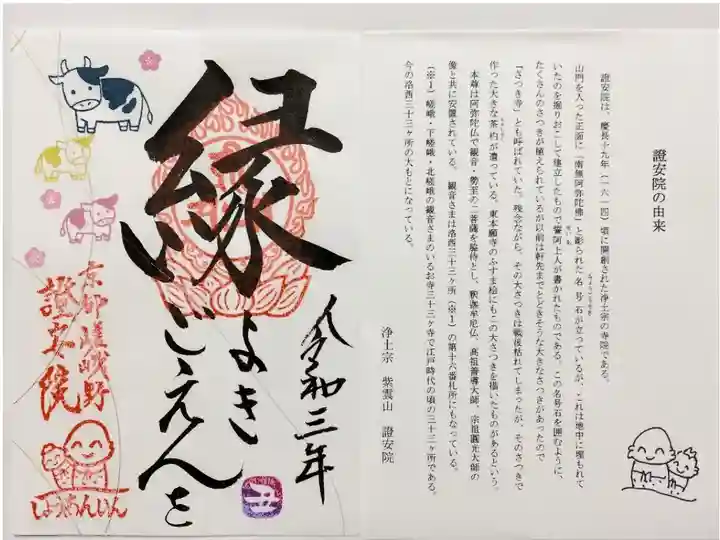 縁
よき
ごえんを
令和三年
京都嵯峨野
證安院
しょうあんいん
證安院の由来
證安院は、慶長十九年（一六一四）頃に開創された浄土宗の寺院である。
山門を入った正面に「南無阿弥陀佛」と彫られた名号石が立っているが、これは地中に埋もれて
いたのを掘りおこして建立したもので誓阿上人が書かれたものである。この名号石を囲むように、
たくさんのさつきが植えられているが以前は軒先までとどきそうな大きなさつきがあったので
「さつき寺」とも呼ばれていた。残念ながら、その大さつきは戦後枯れてしまったが、そのさつきで
作った大きな茶杓が遺っている。東本願寺のふすま絵にもこの大さつきを描いたものがあるという。
本尊は阿弥陀仏で観音・勢至の二菩薩を脇侍とし、釈迦牟尼仏、高祖善導大師、宗祖圓光大師の
像と共に安置されている。観音さまは洛西三十三ヶ所（※１）の第十六番札所にもなっている。
（※１）嵯峨・下嵯峨・北嵯峨の観音さまのいるお寺三十三ヶ寺で江戸時代の頃の三十三ヶ所である。
今の洛西三十三ヶ所の大もとになっている。
浄土宗 紫雲山 證安院